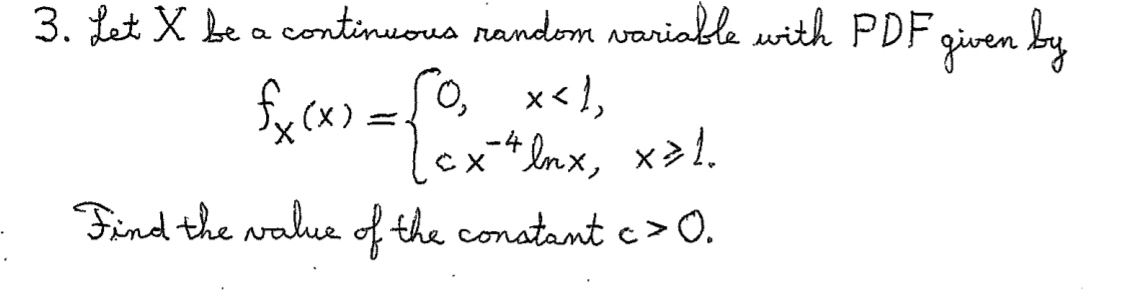 3. Let X be a continuous random variable with PDF given by
f_X(x) = { 0, x < 1,
c x^{-4} ln x, x ⩾ 1.
Find the value of the constant c > 0.